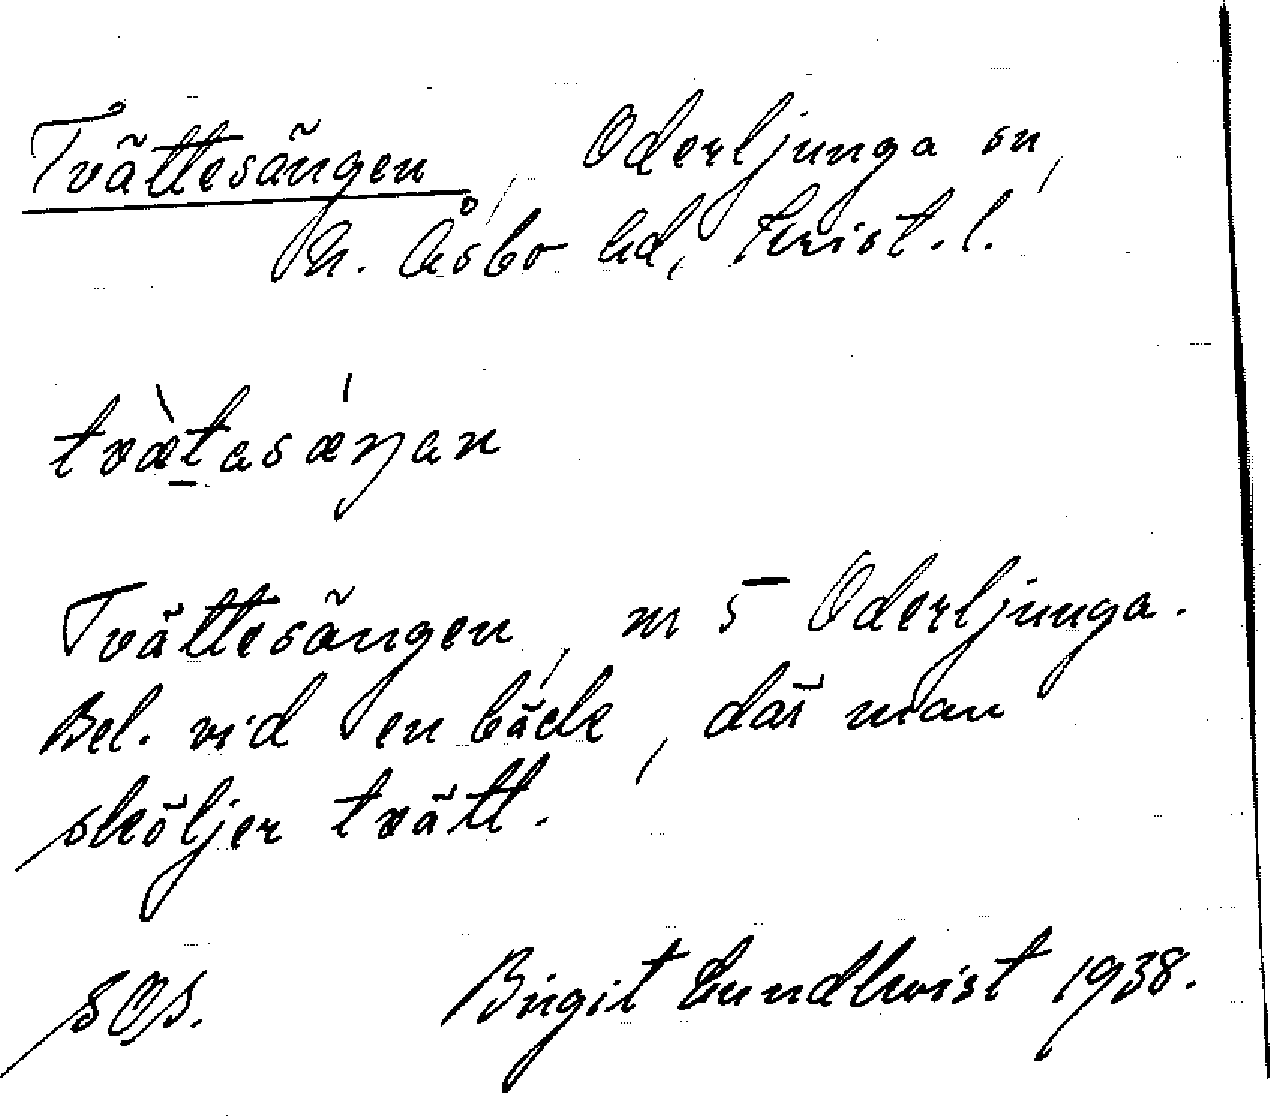 Tvättesängen, Oderljunga sn,
N. Åsbo hd, Krist. l.
tvæ̀tasǽŋan
Tvättesängen, nr 5 Oderljunga.
Bel. vid en bäck, där man
sköljer tvätt.
SOS. Birgit Lundkvist 1938.